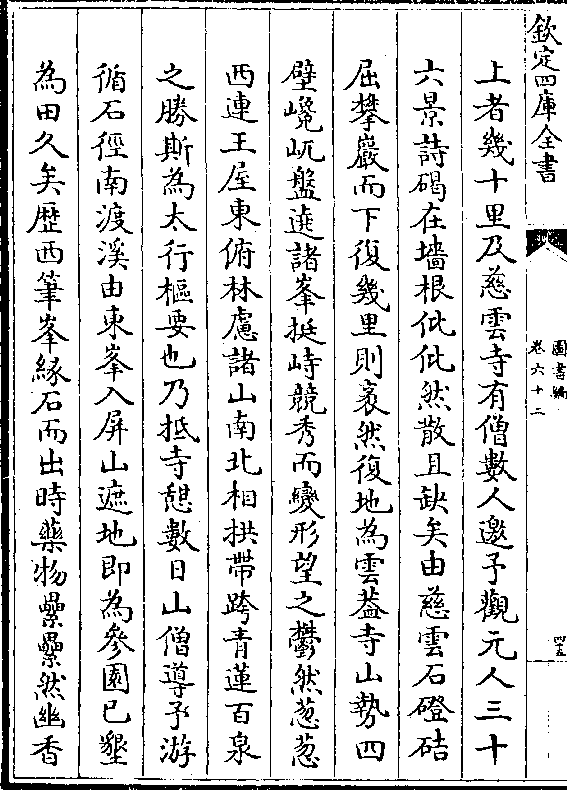 欽定四庫全書
圖書編
卷六十二
四五
上者幾十里及慈雲寺有僧數人邀予觀元人三十
六景詩碣在墻根仳仳然散且缺矣由慈雲石磴硈
屈攀巖而下復幾里則袤然復地為雲葢寺山勢四
壁巉屼盤遶諸峯挺峙競秀而變形望之鬱然葱葱
西連王屋東俯林慮諸山南北相拱帶跨青蓮百泉
之勝斯為太行樞要也乃抵寺憩數日山僧導予游
循石徑南渡溪由東峯入屏山遮地即為參園已墾
為田久矣歴西筆峯緣石而出時藥物纍纍然幽香